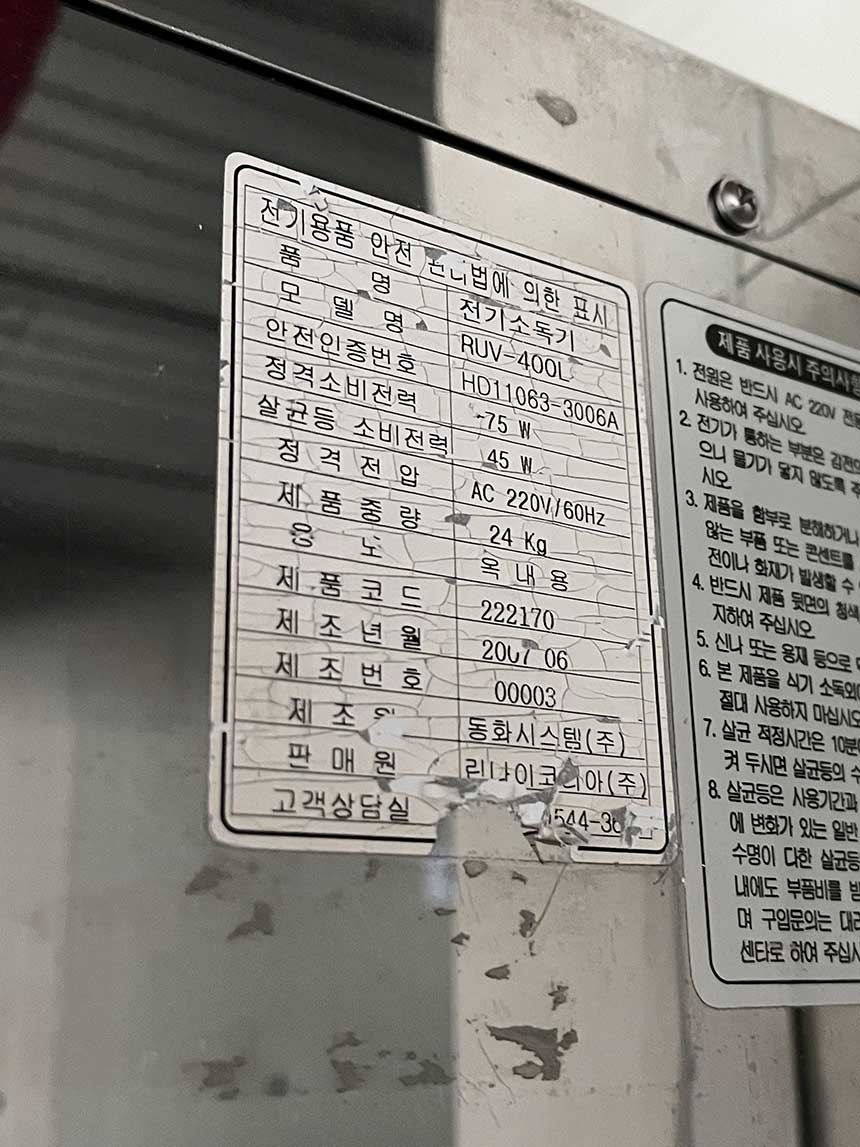 전기용품 안전 관리법에 의한 표시
품 명 전기소독기
모 델 명 RUV-400L
안전인증번호 HD11063-3006A
정격소비전력 75 W
살균등 소비전력 45 W
정 격 전 압 AC 220V/60Hz
제 품 중 량 24 Kg
용 도 옥 내 용
제 품 코 드 222170
제 조 년 월 2007 06
제 조 번 호 00003
제 조 원 동화시스템(주)
판 매 원 린나이코리아(주)
고객상담실
제품 사용시
1. 전원은 반드시 AC 220V
사용하여 주십시오.
2. 전기가 통하는 부분은
으니 물기가 닿지 않도록
시오.
3. 제품을 함부로 분해하거나
않는 부품 또는 콘센트를
전이나 화재가 발생할 수
4. 반드시 제품 뒷면의
지하여 주십시오.
5. 신나 또는 용재 등으로
6. 본 제품을 식기
절대 사용하지 마십시오
7. 살균 적정시간은
켜 두시면 살균등의
8. 살균등은 사용기간과
에 변화가 있는 일반
수명이 다한
내에도 부품비를
며 구입문의는
센타로 하여